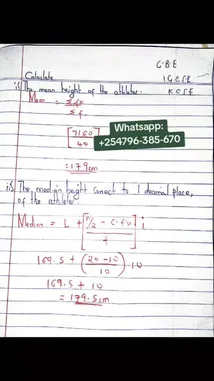 C.B.E
Calculate IGCSE
i) The mean height of the athletes. KCSE
Mean = Σfx
Σf
[7160
40]
Whatsapp:
+254796-385-670
= 179cm
ii) The median height correct to 1 decimal place,
of the athlete
Median = L + [n/2 - C.f.v] i
f
169.5 + (20-10) 10
10
169.5 + 10
= 179.5cm